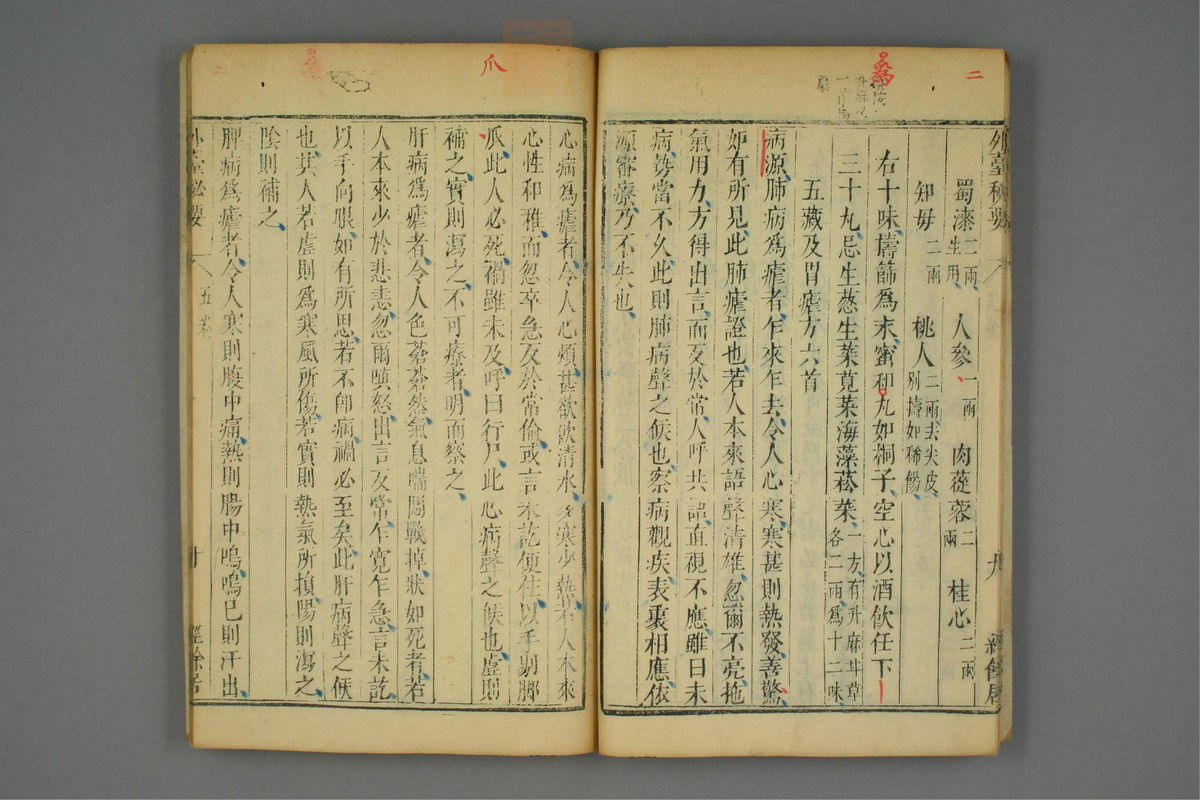 外臺秘要
蜀漆二兩生用 人參一兩 肉蓯蓉二兩 桂心二兩
知母二兩 桃人二兩去尖皮別擣如稀餳
右十味擣篩爲末蜜和丸如桐子空心以酒飲任下
三十丸忌生葱生菜莧菜海藻菘菜一方有升麻斗草各二兩爲十二味
五藏及胃瘧方六首
病源肺病爲瘧者乍來乍去令人心寒寒甚則熱發善驚
如有所見此肺瘧證也若人本來語聲清雄忽爾不亮拖
氣用力方得出言而反於常人呼共語直視不應雖曰未
病勢當不久此則肺病聲之候也察病觀疾表裏相應依
源審療乃不失也
心病爲瘧者令人心煩甚欲飲清水多寒少熱若人本來
心性和雅而忽卒急反於常倫或言未訖便住以手剔脚
爪此人必死禍雖未及呼曰行尸此心病聲之候也虛則
補之實則瀉之不可療者明而察之
肝病爲瘧者令人色蒼蒼然氣息喘悶戰掉狀如死者若
人本來少於悲恚忽爾嗔怒出言反常乍寬乍急言未訖
以手向眼如有所思若不卽病禍必至矣此肝病聲之候
也其人若虛則爲寒風所傷若實則熱氣所損陽則瀉之
陰則補之
脾病爲瘧者令人寒則腹中痛熱則腸中鳴鳴已則汗出
外臺秘要
五卷
十
經餘居
爪
二